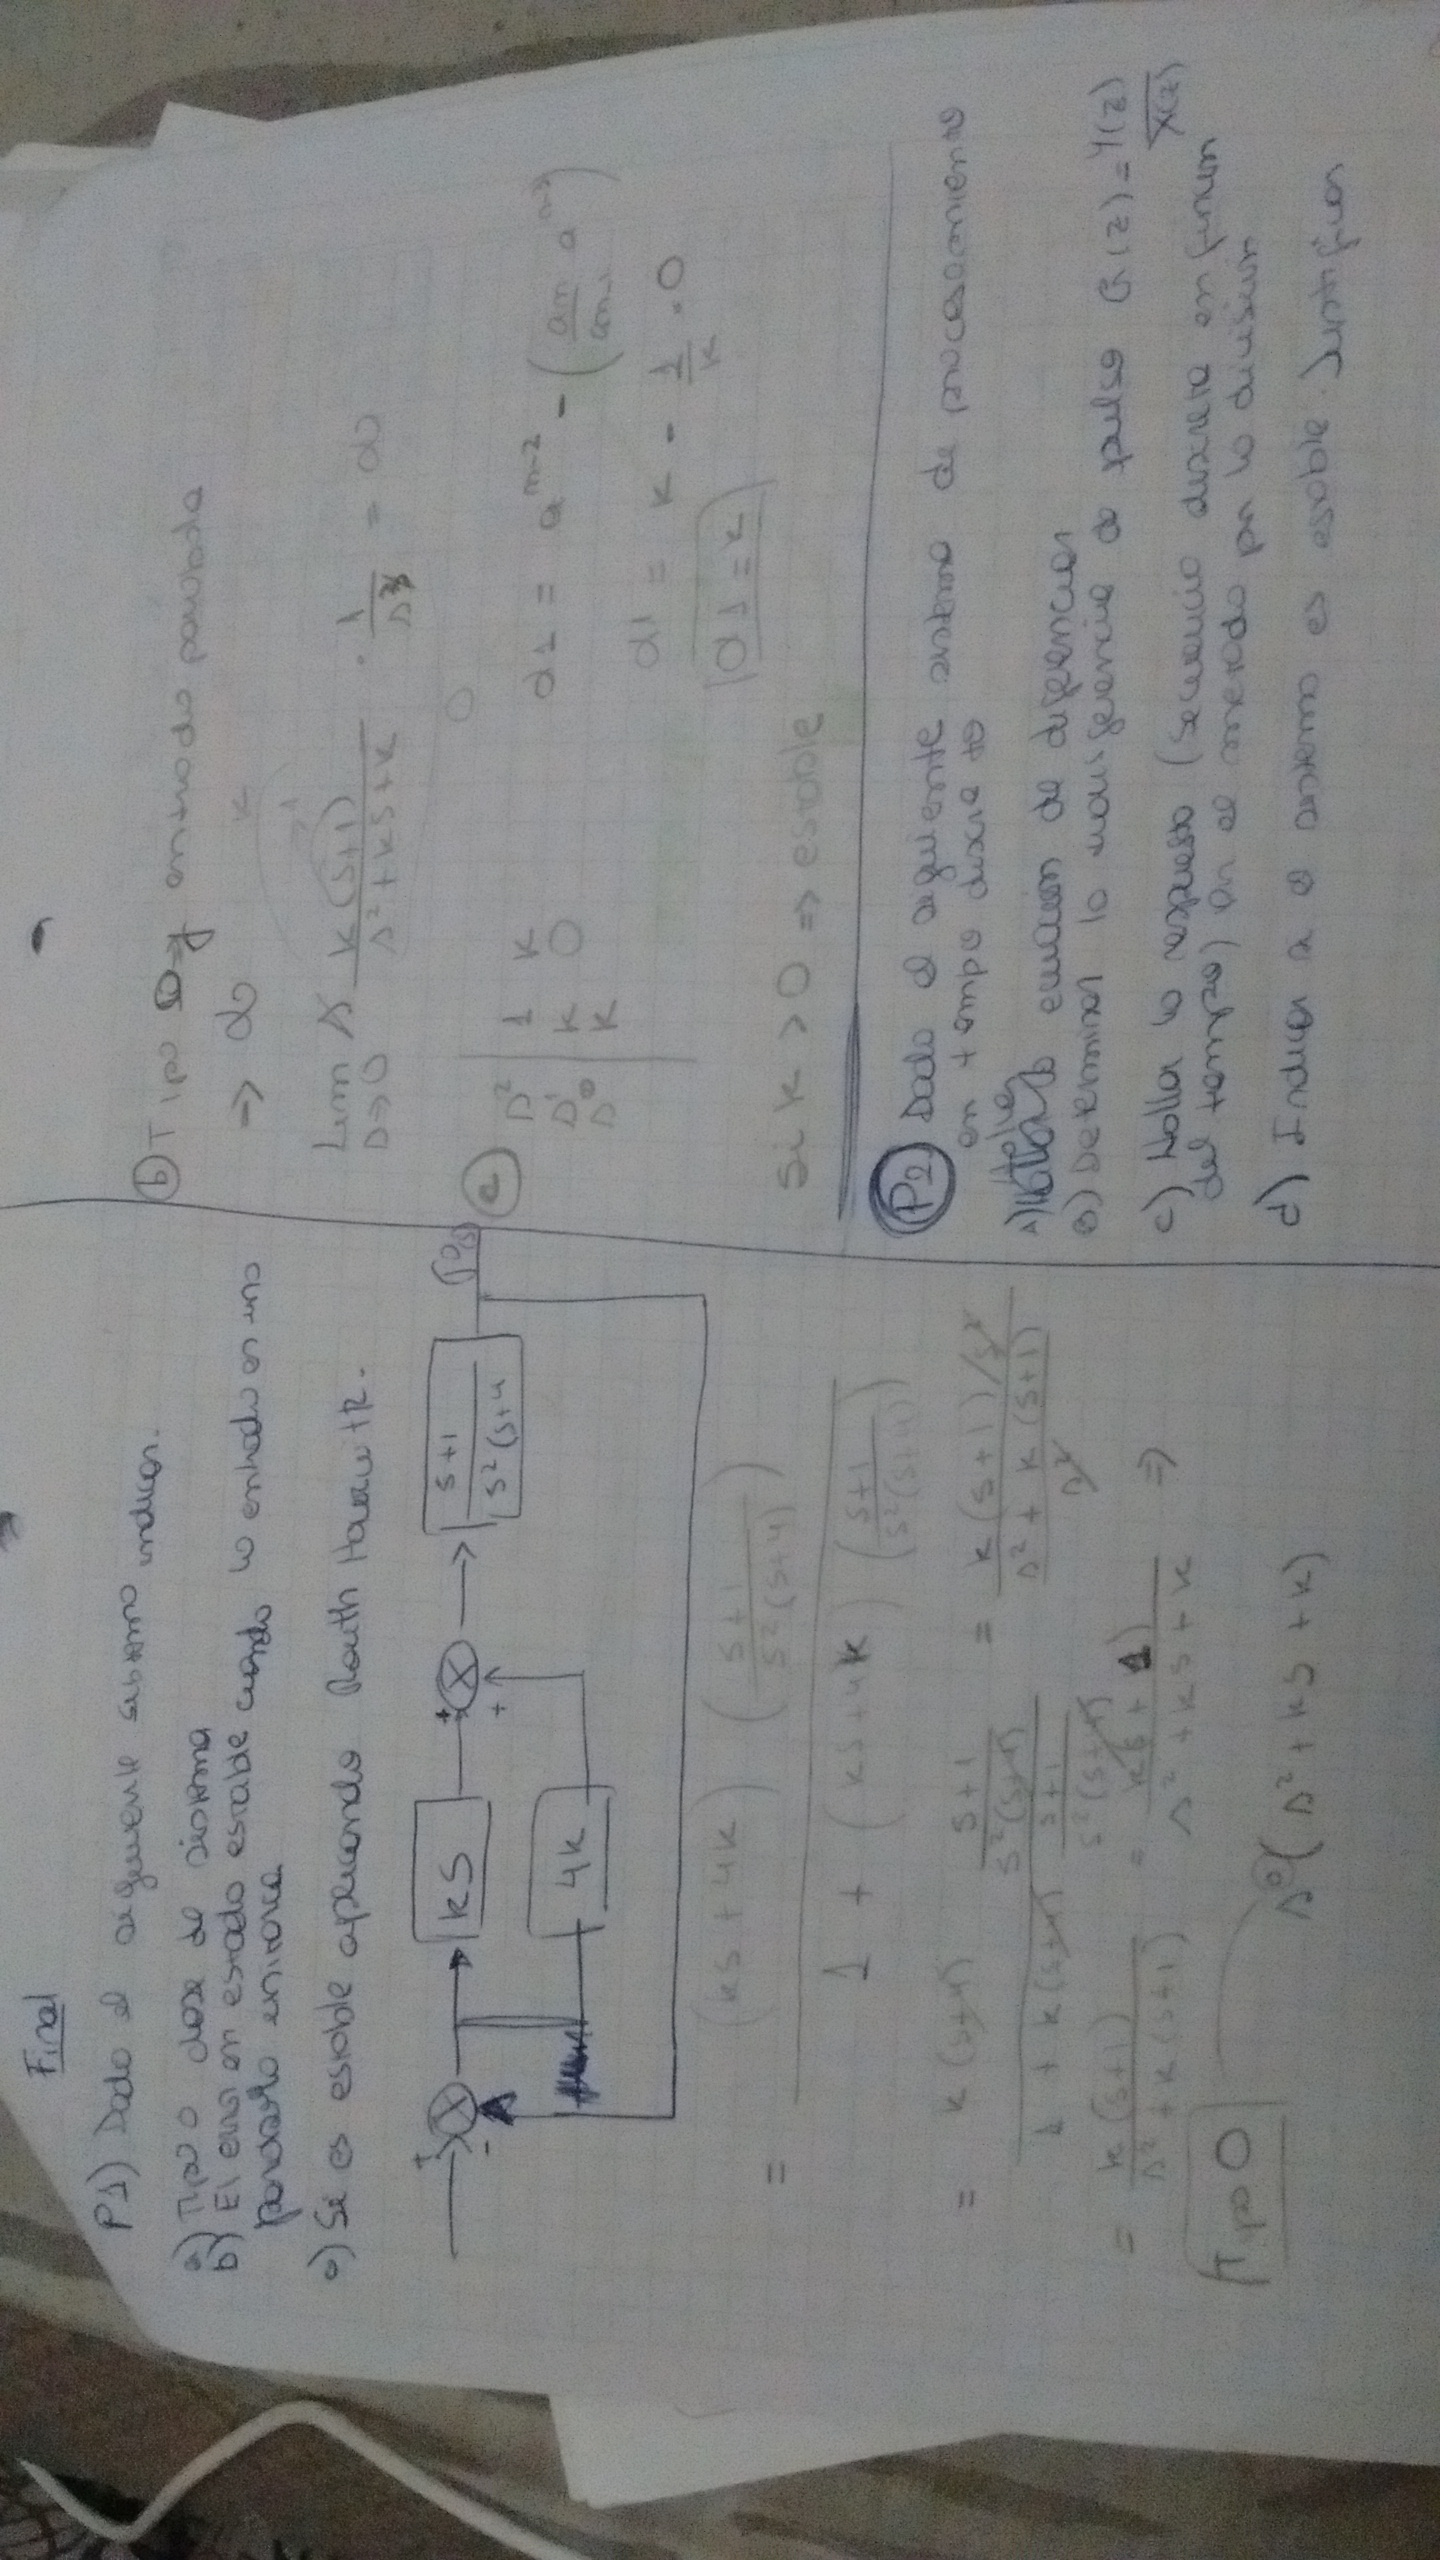 Final
P1) Dado el siguiente sistema indicar.
a) Tipo o clase de sistema
b) El error en estado estable cuando la entrada es una
parabola unitaria
c) Si es estable aplicando Routh Hurwitz.
+
-
ks
4k
+
+
s+1
s²(s+4
= (ks+4k) (s+1 / s²(s+4))
1 + (ks+4k) (s+1 / s²(s+4))
= k(s+4) s+1 / s²(s+4)
1 + k(s+4) s+1 / s²(s+4)
= k(s+1)/s²
s² + k(s+1) / s²
= k(s+1) / s² + k(s+1) = ks+1) / s² + ks + k ⇒
Tipo 0
s⁰(s² + ks + k)
b) Tipo 0 entrada parabola
⇒ ∞
Lim s→0 s k(s+1) / s² + ks + k . 1 / s³ = ∞
0
c)
s² 1 k
s¹ k 0
s⁰ k
d1 = a^n-2 - (an / an-1 a^n-3)
d1 = k - 1/k . 0
d1 = k
Si k > 0 ⇒ estable
P2 Dado el siguiente sistema de procesamiento
en tiempo discreto
a) Halle la ecuación de diferencias
b) Determinar la transferencia de pulso G(z) = Y(z) / X(z)
c) Halla la respuesta (secuencia discreta en funcion
del tiempo) por el metodo por la division
d) Indicar si el sistema es estable. Justificar